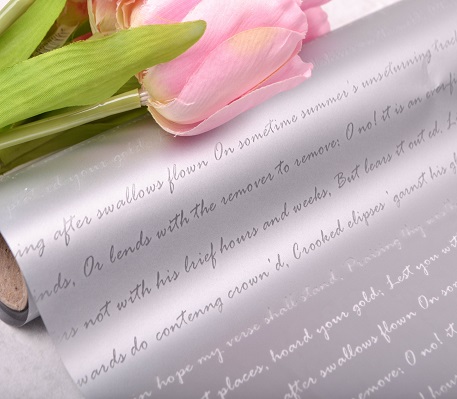 ing after swallows flown On sometime summer's unreturning
nds, Or lends with the remover to remove: O no! it is an
is not with his brief hours and weeks, But lears it out ed. L
wards do contenng crown'd, Crooked elipses' garnst his gl
n hope my verse shall stand. Praising thy
t places, hoard your gold; Lest you wit
after swallows flown On so
remove: O no! it